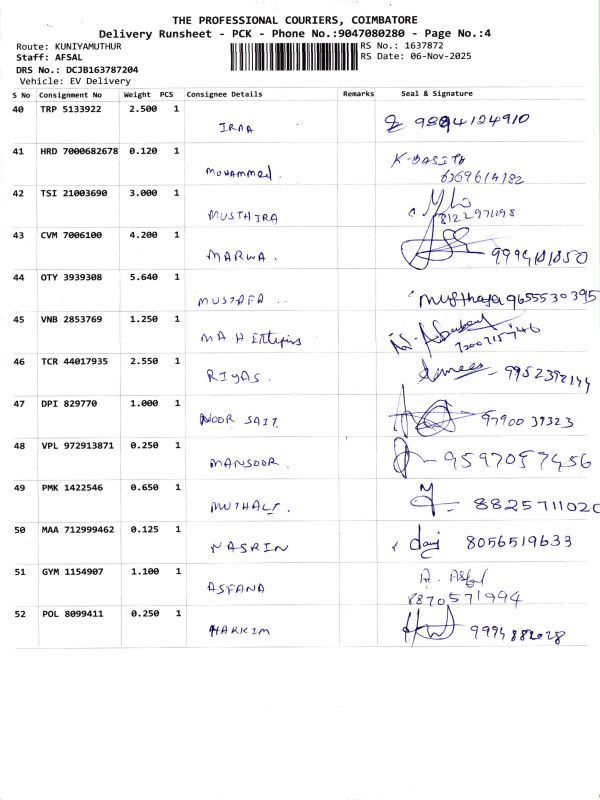 THE PROFESSIONAL COURIERS, COIMBATORE
Delivery Runsheet - PCK - Phone No.:9047080280 - Page No.:4
Route: KUNIYAMUTHUR RS No.: 1637872
Staff: AFSAL RS Date: 06-Nov-2025
DRS No.: DCJB163787204
Vehicle: EV Delivery
S No Consignment No Weight PCS Consignee Details Remarks Seal & Signature
40 TRP 5133922 2.500 1
IRMA 9894124910
41 HRD 7000682678 0.120 1 K-BASITH
MOHAMMED. 6369614182
42 TSI 21003690 3.000 1
MUSTHIRA 8122971198
43 CVM 7006100 4.200 1
MARWA.
44 OTY 3939308 5.640 1
MUSTAFA Musthafa 9655530395
45 VNB 2853769 1.250 1
MAH
46 TCR 44017935 2.550 1
RIYAS. 9952392144
47 DPI 829770 1.000 1
NOOR SAIT 9790039323
48 VPL 972913871 0.250 1
MANSOOR. 9597057456
49 PMK 1422546 0.650 1
MUTHALI. 8825711020
50 MAA 712999462 0.125 1
NASRIN 8056519633
51 GYM 1154907 1.100 1
ASFANA 8870571994
52 POL 8099411 0.250 1
HAKKIM